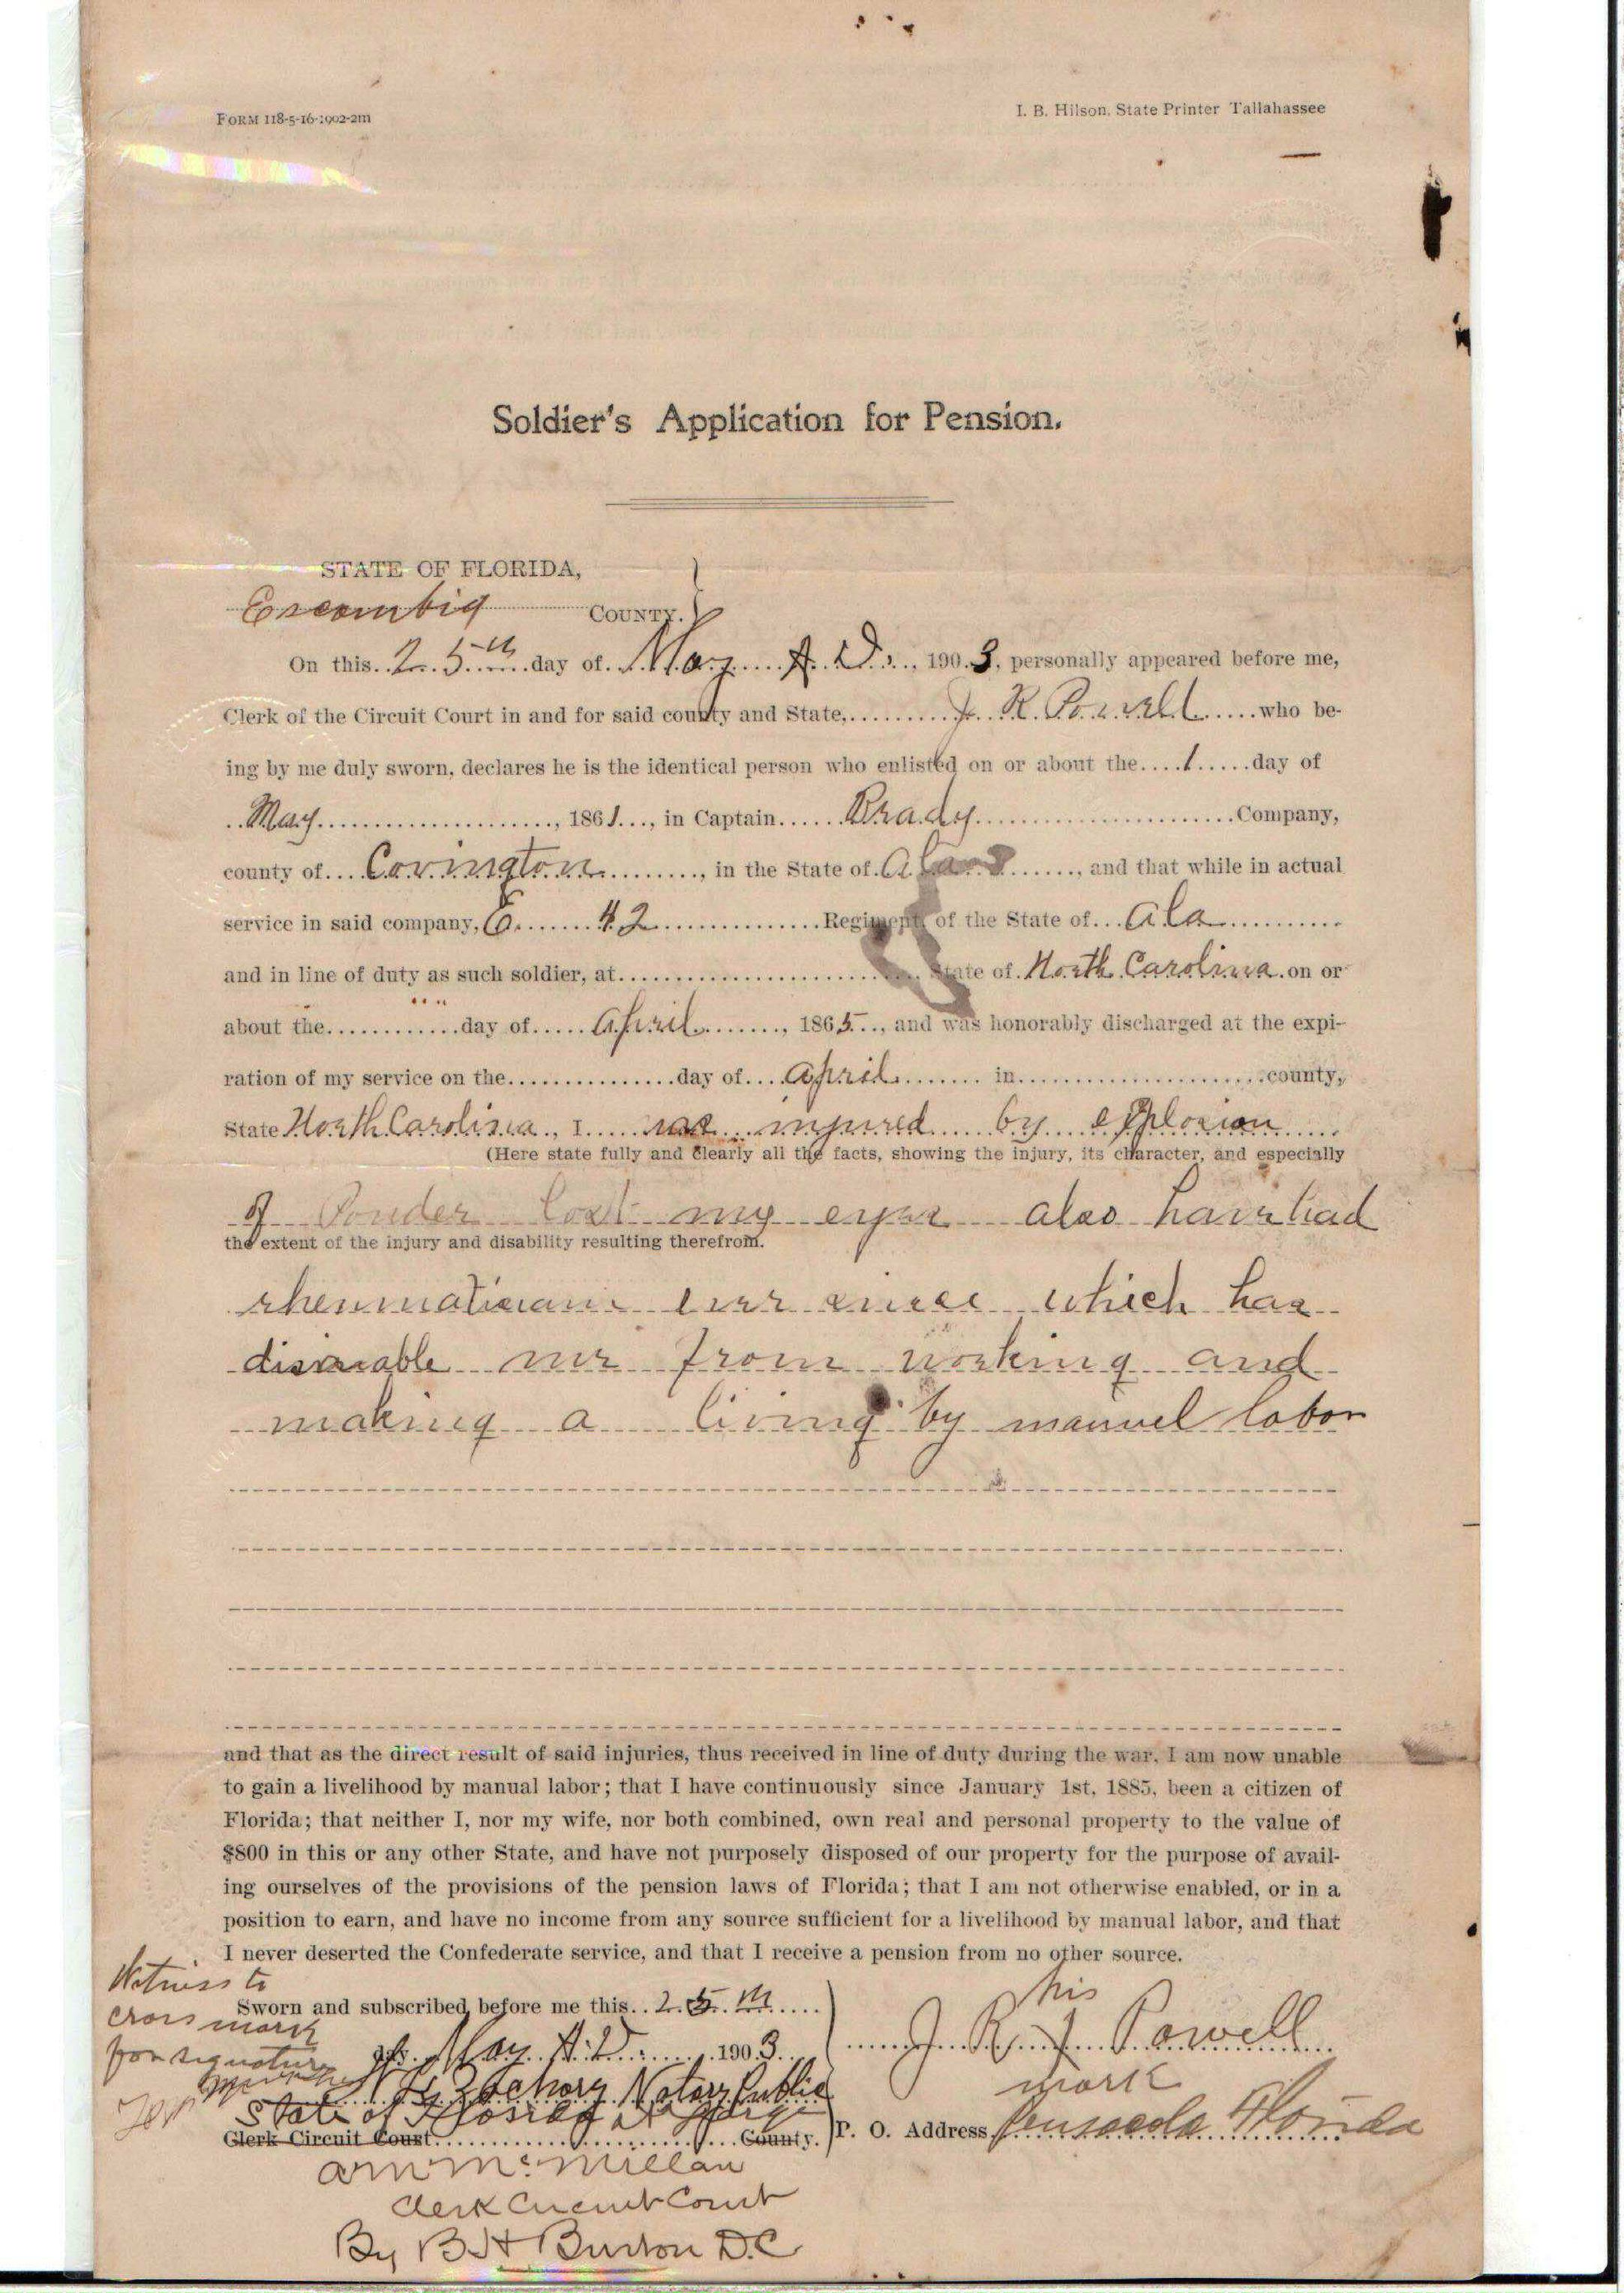 FORM 118-5-16-1902-2m
I. B. Hilson, State Printer Tallahassee
Soldier's Application for Pension.
STATE OF FLORIDA,
Escambia COUNTY.
On this 25th day of May A. D. 1903, personally appeared before me,
Clerk of the Circuit Court in and for said county and State, J. R. Powell who be-
ing by me duly sworn, declares he is the identical person who enlisted on or about the 1 day of
May, 1861, in Captain Brady Company,
county of Covington, in the State of Ala, and that while in actual
service in said company, E 42 Regiment of the State of Ala
and in line of duty as such soldier, at State of North Carolina on or
about the day of April, 1865, and was honorably discharged at the expi-
ration of my service on the day of April in county,
State North Carolina, I was injured by explosion
(Here state fully and clearly all the facts, showing the injury, its character, and especially
of Pouder lost my eyes also have had
the extent of the injury and disability resulting therefrom.
rheumatism ever since which has
disable me from working and
making a living by manuel labor
and that as the direct result of said injuries, thus received in line of duty during the war, I am now unable
to gain a livelihood by manual labor; that I have continuously since January 1st, 1885, been a citizen of
Florida; that neither I, nor my wife, nor both combined, own real and personal property to the value of
$800 in this or any other State, and have not purposely disposed of our property for the purpose of avail-
ing ourselves of the provisions of the pension laws of Florida; that I am not otherwise enabled, or in a
position to earn, and have no income from any source sufficient for a livelihood by manual labor, and that
I never deserted the Confederate service, and that I receive a pension from no other source.
Witness to
cross mark
for signature
Sworn and subscribed before me this 25th
day May A. D. 1903
Zachary Notary Public
State of Florida at Large
Clerk Circuit Court County.
his
J. R. X Powell
mark
P. O. Address Pensacola Florida
McMillan
Clerk Circuit Court
By B H Burton D.C